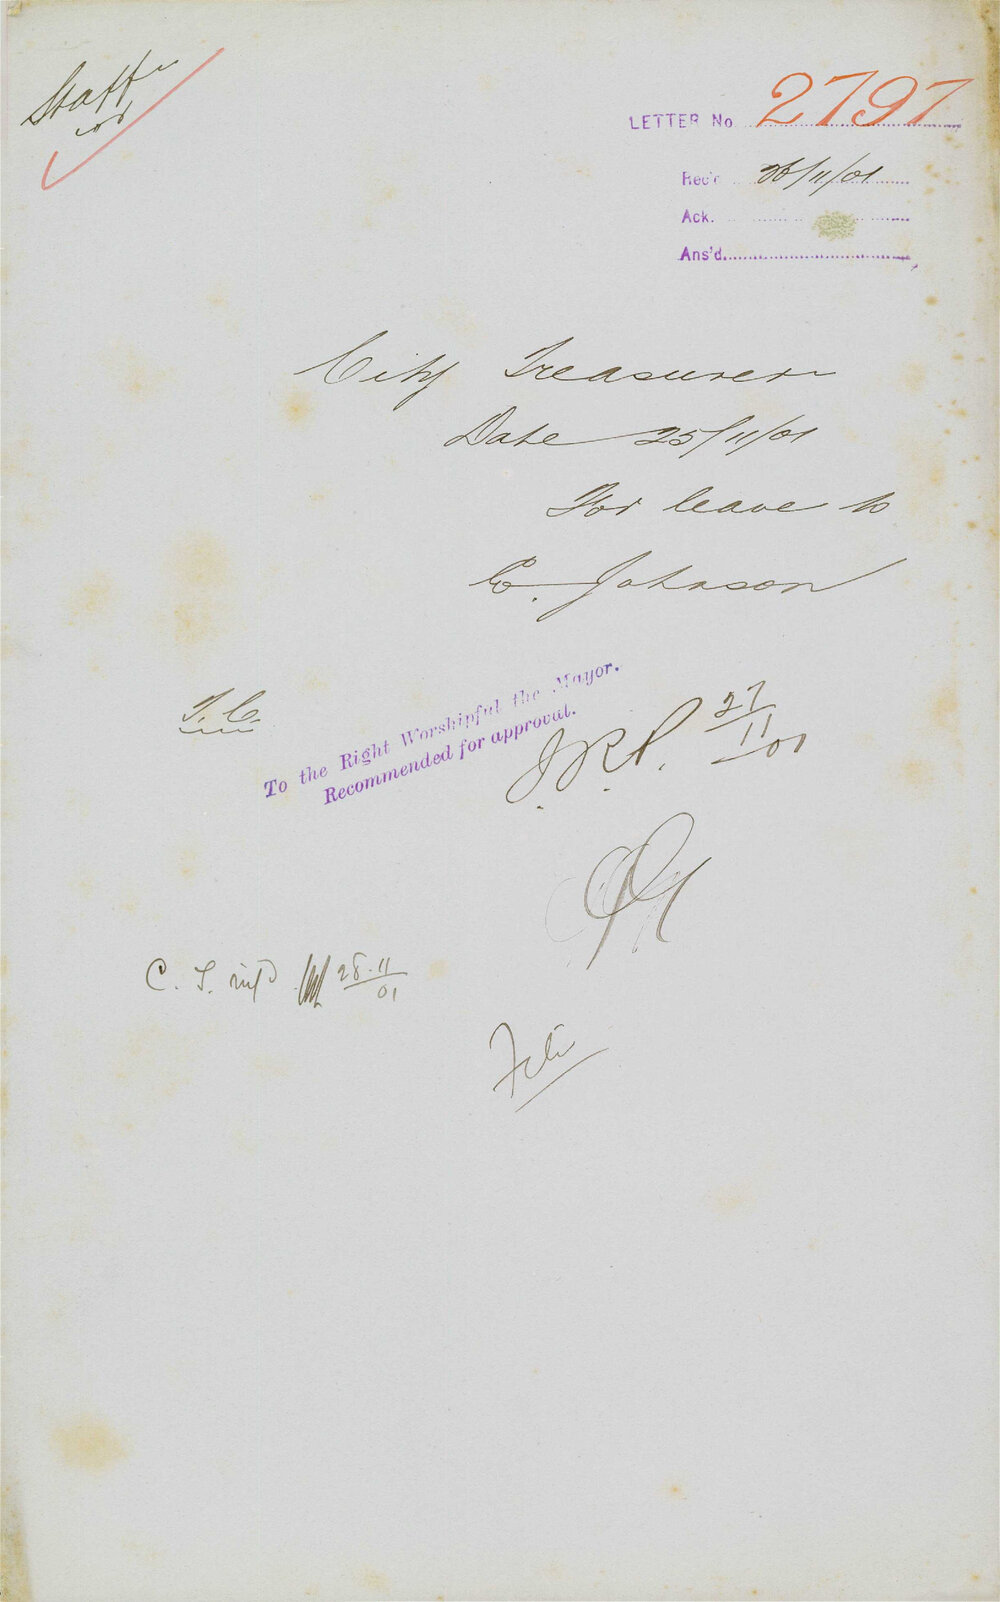 Staff
LETTER No 2797
Rec'd 26/11/01
Ack.
Ans'd
City Treasurer
Date 25/11/01
For leave to
C. Johnson
T.C.
To the Right Worshipful the Mayor.
Recommended for approval.
27/11/01
C. T. inf'd 28.11/01
File